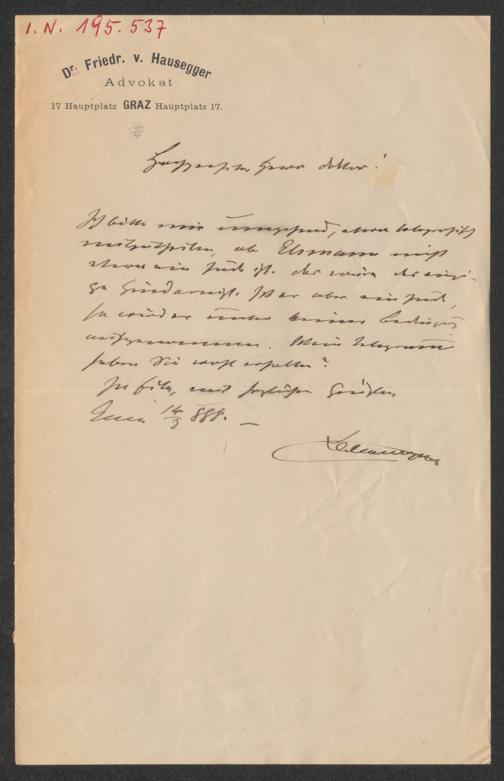 I. N. 195.537
Dr. Friedr. v. Hausegger
Advokat
17 Hauptplatz GRAZ Hauptplatz 17.
Hochgeehrter Herr Doktor!
Ich bitte mir umgehend, etwa telegrafisch
mitzutheilen, ob Elsmann nicht
etwa ein Jud ist. Das wäre der einzi-
ge Hinderniß. Ist er aber ein Jud,
so wird er unter keiner Bedingung
aufgenommen. Mein Telegramm
haben Sie wohl erhalten?
In Eile, mit herzlichen Grüßen
14/2 888. —
Hausegger